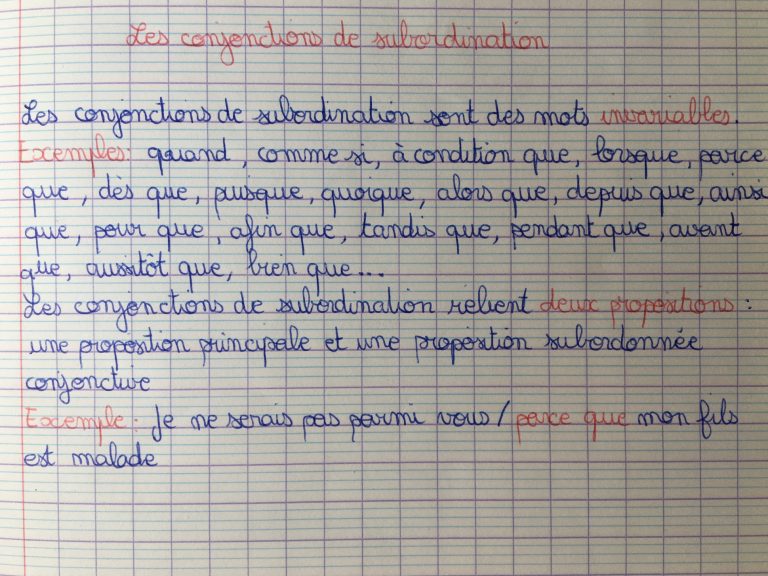 Les conjonctions de subordination
Les conjonctions de subordination sont des mots invariables.
Exemples: quand, comme si, à condition que, lorsque, parce
que, dès que, puisque, quoique, alors que, depuis que, ainsi
que, pour que, afin que, tandis que, pendant que, avant
que, aussitôt que, bien que...
Les conjonctions de subordination relient deux propositions :
une proposition principale et une proposition subordonnée
conjonctive
Exemple: Je ne serais pas parmi vous / parce que mon fils
est malade